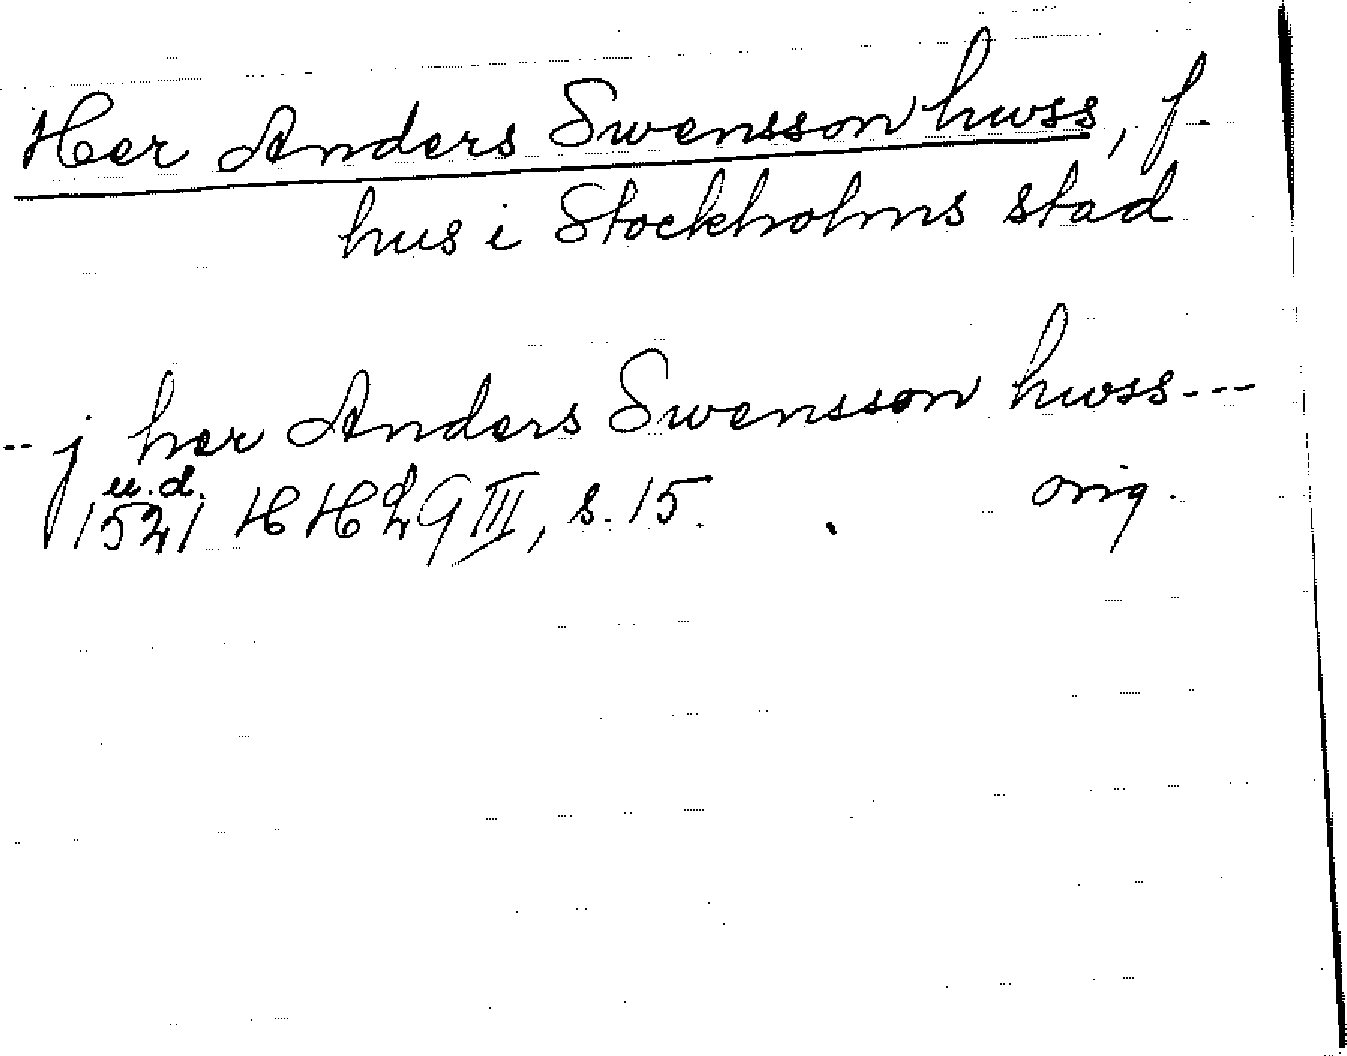 Her Anders Swensson hwss, f.
hus i Stockholms stad
-- j her Anders Swensson hwss ---
u.d.
1521 HH 29 III, s. 15. orig.